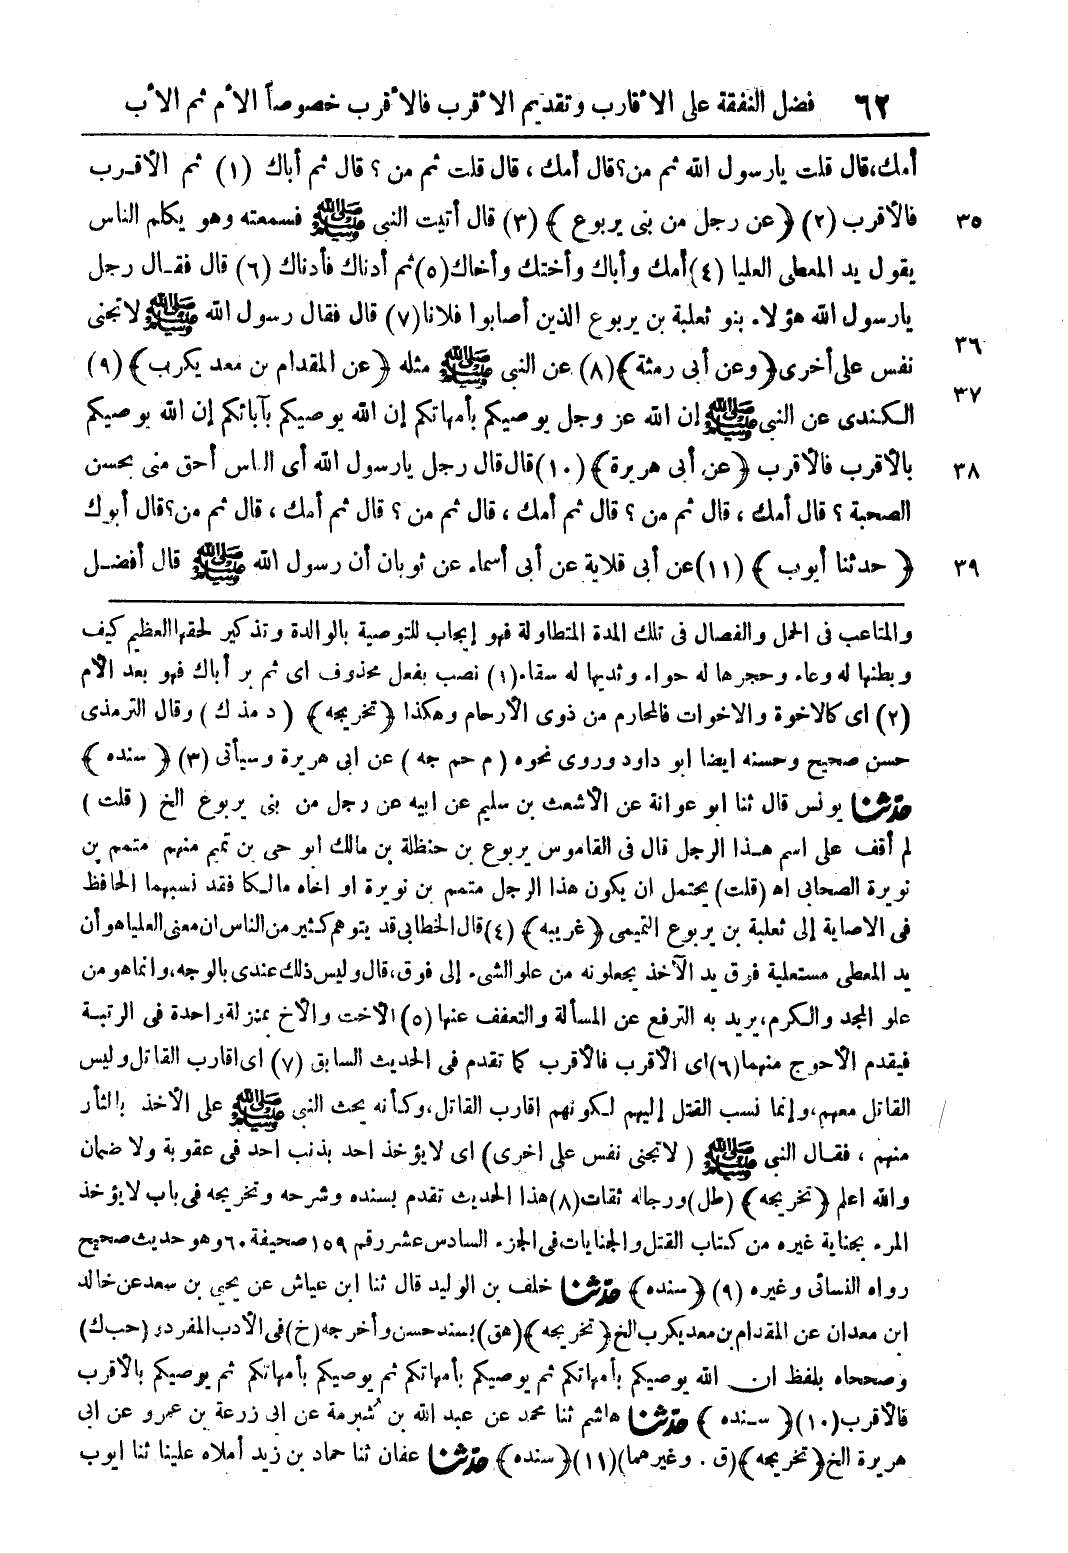 ٦٢ فضل النفقة على الأقارب وتقديم الأقرب فالأقرب خصوصاً الأم ثم الأب
أمك،قال قلت يارسول الله ثم من؟قال أمك ، قال قلت ثم من ؟ قال ثم أباك (١) ثم الأقـرب
٣٥ فالأقرب (٢) ﴿عن رجل من بنى يربوع﴾ (٣) قال أتيت النبى ﷺ فسمعته وهو يكلم الناس
يقول يد المعطى العليا (٤)أمك وأباك وأختك وأخاك(٥)ثم أدناك فأدناك (٦) قال فقـال رجل
يارسول الله هؤلاء بنو ثعلبة بن يربوع الذين أصابوا فلانا(٧) قال فقال رسول الله ﷺ لاتجنى
٣٦ نفس على أخرى﴿وعن أبى رمثة﴾(٨) عن النبى ﷺ مثله ﴿عن المقدام بن معد يكرب﴾(٩)
٣٧ الكندى عن النبى ﷺ إن الله عز وجل يوصيكم بأمهاتكم إن الله يوصيكم بآبائكم إن الله يوصيكم
٣٨ بالأقرب فالأقرب ﴿عن أبى هريرة﴾(١٠)قال قال رجل يارسول الله أى الناس أحق منى بحسن
الصحبة ؟ قال أمك ، قال ثم من ؟ قال ثم أمك ، قال ثم من ؟ قال ثم أمك ، قال ثم من؟قال أبوك
٣٩ ﴿حدثنا أيوب﴾ (١١)عن أبى قلابة عن أبى أسماء عن ثوبان أن رسول الله ﷺ قال أفضـل
والمتاعب فى الحمل والفصال فى تلك المدة المتطاولة فهو إيجاب للتوصية بالوالدة وتذكير لحقها العظيم كيف
وبطنها له وعاء وحجرها له حواء وثديها له سقاء(١) نصب بفعل محذوف اى ثم بر أباك فهو بعد الأم
(٢) اى كالاخوة والاخوات فالمحارم من ذوى الأرحام وهكذا ﴿تخريجه﴾ (د مذ ك) وقال الترمذى
حسن صحيح وحسنه ايضا ابو داود وروى نحوه (م حم جه) عن ابى هريرة وسيأتى (٣)﴿سنده﴾
حدثنا يونس قال ثنا ابو عوانة عن الأشعث بن سليم عن ابيه عن رجل من بنى يربوع الخ (قلت)
لم أقف على اسم هـذا الرجل قال فى القاموس يربوع بن حنظلة بن مالك ابو حى بن تميم منهم متمم بن
نويرة الصحابى اه (قلت) يحتمل ان يكون هذا الرجل متمم بن نويرة او اخاه مالكا فقد نسبهما الحافظ
فى الاصابة إلى ثعلبة بن يربوع التميمى ﴿غريبه﴾ (٤)قال الخطابى قد يتوهم كثير من الناس ان معنى العليا هو أن
يد المعطى مستعلية فوق يد الآخذ يجعلونه من علو الشىء إلى فوق،قال وليس ذلك عندى بالوجه،وانما هو من
علو المجد والكرم،يريد به الترفع عن المسألة والتعفف عنها (٥) الأخت والأخ بمنزلة واحدة فى الرتبـة
فيقدم الأحوج منهما(٦)اى الأقرب فالأقرب كما تقدم فى الحديث السابق (٧) اى اقارب القاتل وليس
القاتل معهم،وإنما نسب القتل إليهم لكونهم اقارب القاتل،وكأنه يحث النبى ﷺ على الأخذ بالثأر
منهم ، فقـال النبى ﷺ (لاتجنى نفس على اخرى) اى لايؤخذ احد بذنب احد فى عقوبة ولا ضمان
والله اعلم ﴿تخريجه﴾ (طل)ورجاله ثقات(٨)هذا الحديث تقدم بسنده وشرحه وتخريجه فى باب لايؤخذ
المرء بجناية غيره من كتاب القتل والجنايات فى الجزء السادس عشر رقم ١٥٩ صحيفة ٦٠ وهو حديث صحيح
رواه النسائى وغيره (٩) ﴿سنده﴾ حدثنا خلف بن الوليد قال ثنا ابن عياش عن يحيى بن سعد عن خالد
ابن معدان عن المقدام بن معد يكرب الخ﴿تخريجه﴾(هق)بسند حسن وأخرجه(خ)فى الأدب المفرد،(حب ك)
وصححاه بلفظ ان الله يوصيكم بأمهاتكم ثم يوصيكم بأمهاتكم ثم يوصيكم بأمهاتكم ثم يوصيكم بالأقرب
فالأقرب(١٠)﴿سـنده﴾ حدثنا هاشم ثنا محمد عن عبد الله بن شبرمة عن ابى زرعة بن عمرو عن ابى
هريرة الخ﴿تخريجه﴾(ق . وغيرهما)(١١)﴿سنده﴾ حدثنا عفان ثنا حماد بن زيد أملاه علينا ثنا ايوب